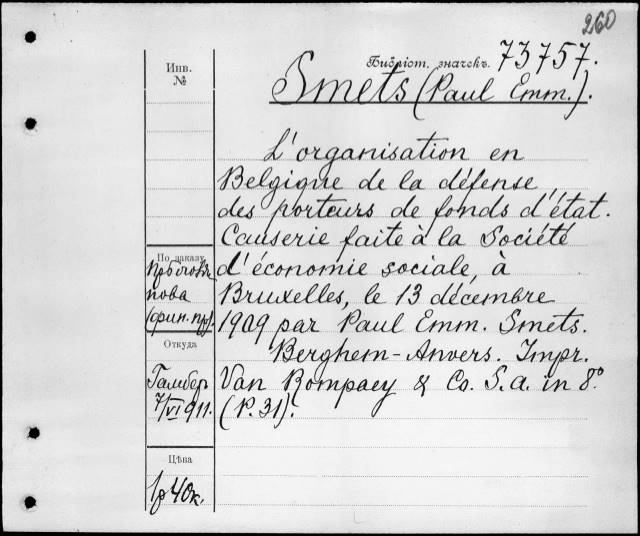 260
Библіот. значекъ. 73757.
Инв.
№
Smets (Paul Emm.).
L'organisation en
Belgique de la défense
des porteurs de fonds d'état.
Causerie faite à la Société
d'économie sociale, à
Bruxelles, le 13 décembre
1909 par Paul Emm. Smets.
Berghem-Anvers. Impr.
Van Rompaey & Co. S.a. in 8º
(P. 31).
По заказу
пова
(фин. пр).
Откуда
Гамбер
7/VI 911.
Цѣна
1р 40к.